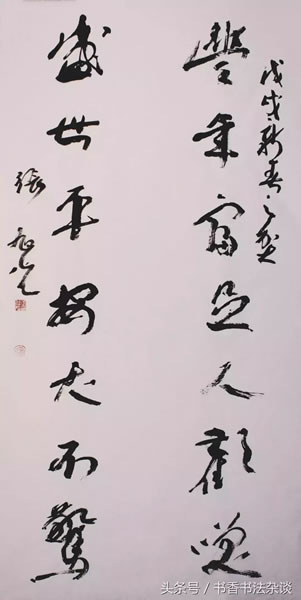 戊戌新春之
豐年富足人歡咲
盛世平安犬不驚
張旭光
头条号 / 书香书法杂谈